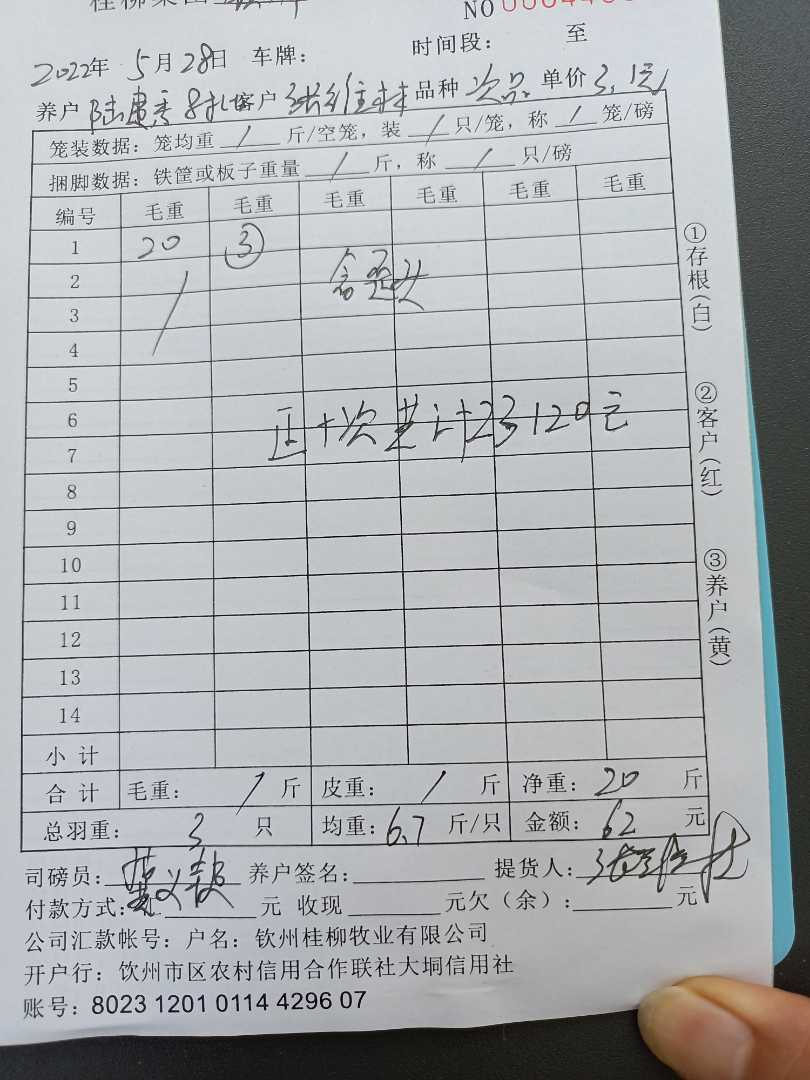 桂柳集团
NO
2022年 5月28日 车牌： 时间段： 至
养户 陆 客户 张维林 品种 次品 单价 3.1元
笼装数据：笼均重 / 斤/空笼，装 / 只/笼，称 / 笼/磅
捆脚数据：铁筐或板子重量 / 斤，称 / 只/磅
编号 毛重 毛重 毛重 毛重 毛重 毛重
1 20 ③
2
3
4
5
6
正+次 共计23120元
7
8
9
10
11
12
13
14
小 计
合 计 毛重： / 斤 皮重： / 斤 净重：20 斤
总羽重： 3 只 均重：6.7 斤/只 金额：62 元
司磅员： 养户签名： 提货人：张维林
付款方式： 元 收现 元欠（余）： 元
公司汇款帐号：户名：钦州桂柳牧业有限公司
开户行：饮州市区农村信用合作联社大垌信用社
账号：8023 1201 0114 4296 07
①存根（白）
②客户（红）
③养户（黄）